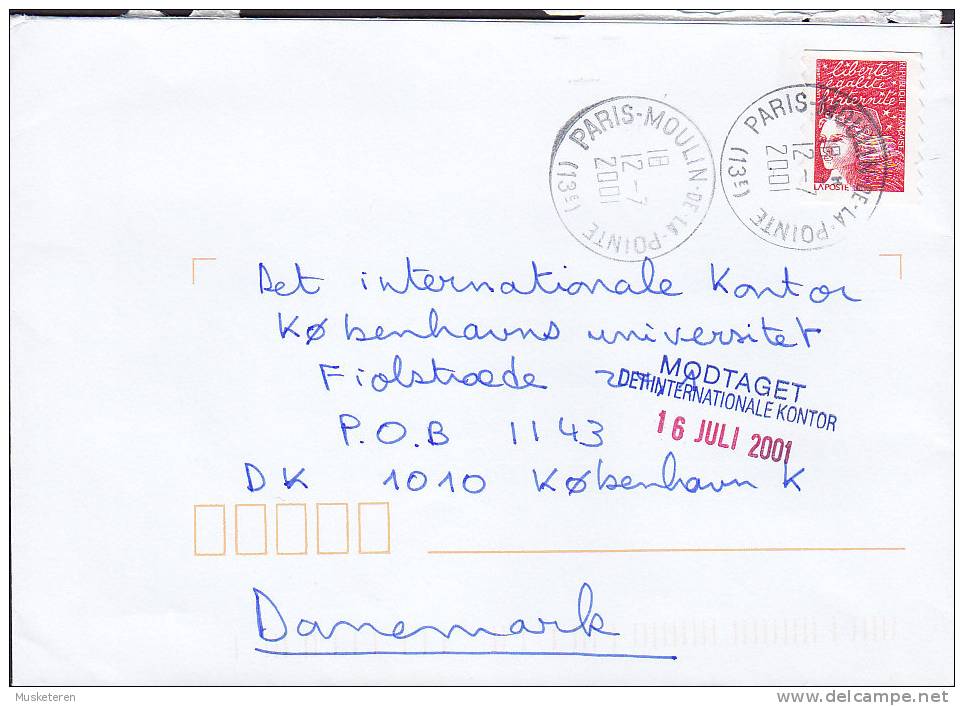 liberté
égalité
fraternité
RÉPUBLIQUE FRANÇAISE
LA POSTE
PARIS-MOULIN-DE-LA-POINTE (13E)
18
12-7
2001
PARIS-MOULIN-DE-LA-POINTE (13E)
12-7
2001
Det internationale Kontor
Københavns universitet
Fiolstræde
MODTAGET
DET INTERNATIONALE KONTOR
16 JULI 2001
P.O.B 1143
DK 1010 København K
Danemark
Musketeren
delcampe.net